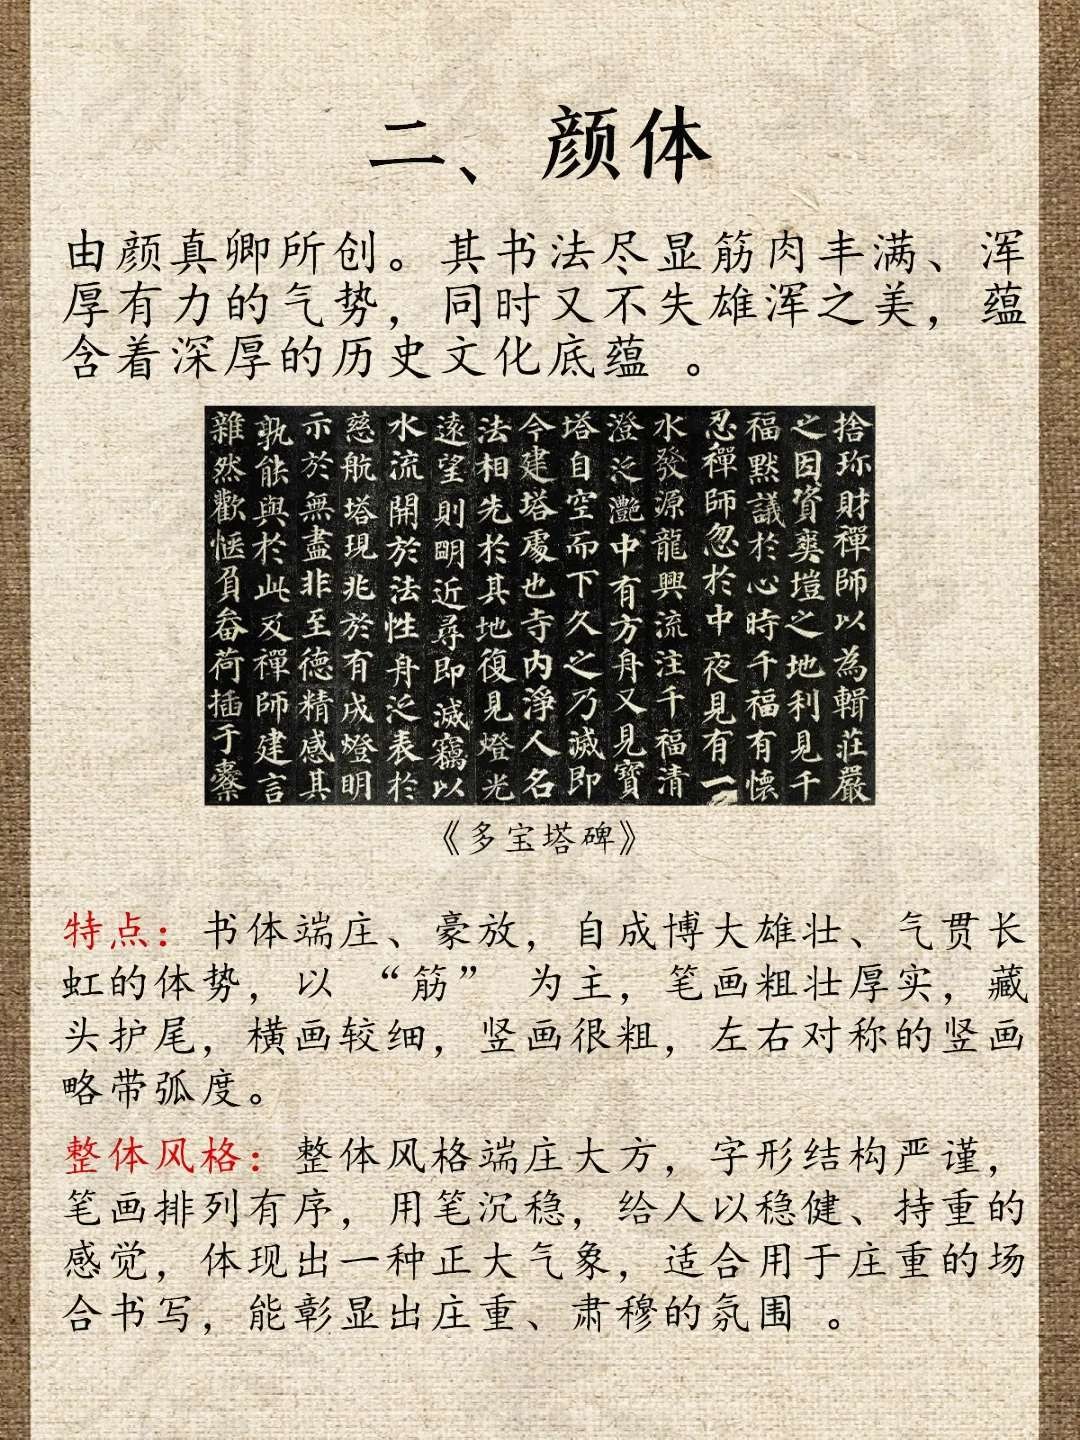 二、颜体
由颜真卿所创。其书法尽显筋肉丰满、浑
厚有力的气势，同时又不失雄浑之美，蕴
含着深厚的历史文化底蕴 。
捨珎財禪師以為輯莊嚴
之因資爽塏之地利見千
福默議於心時千福有懷
忍禪師忽於中夜見有一
水發源龍興流注千福清
澄泛灧中有方舟又見寶
塔自空而下久之乃滅即
今建塔處也寺内淨人名
法相先於其地復見燈光
遠望則明近尋即滅竊以
水流開於法性舟泛表於
慈航塔現兆於有成燈明
示於無盡非至德精感其
孰能與於此及禪師建言
雜然歡愜負畚荷插于橐
《多宝塔碑》
特点：书体端庄、豪放，自成博大雄壮、气贯长
虹的体势，以 “筋” 为主，笔画粗壮厚实，藏
头护尾，横画较细，竖画很粗，左右对称的竖画
略带弧度。
整体风格：整体风格端庄大方，字形结构严谨，
笔画排列有序，用笔沉稳，给人以稳健、持重的
感觉，体现出一种正大气象，适合用于庄重的场
合书写，能彰显出庄重、肃穆的氛围 。